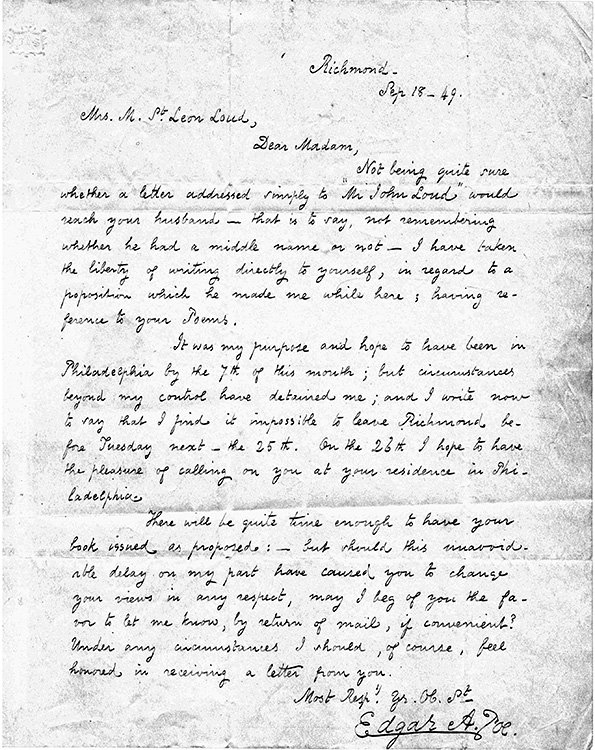 Richmond —
Sep 18 — 49.
Mrs. M. St. Leon Loud,
Dear Madam,
Not being quite sure
whether a letter addressed simply to "Mr John Loud" would
reach your husband — that is to say, not remembering
whether he had a middle name or not — I have taken
the liberty of writing directly to yourself, in regard to a
proposition which he made me while here; having re-
ference to your Poems.
It was my purpose and hope to have been in
Philadelphia by the 7th of this month; but circumstances
beyond my control have detained me; and I write now
to say that I find it impossible to leave Richmond be-
fore Tuesday next — the 25th. On the 26th I hope to have
the pleasure of calling on you at your residence in Phi-
ladelphia.
There will be quite time enough to have your
book issued as proposed: — but should this unavoid-
able delay on my part have caused you to change
your views in any respect, may I beg of you the fa-
vor to let me know, by return of mail, if convenient?
Under any circumstances I should, of course, feel
honored in receiving a letter from you.
Most Respy. Yr. Ob. St
Edgar A. Poe.